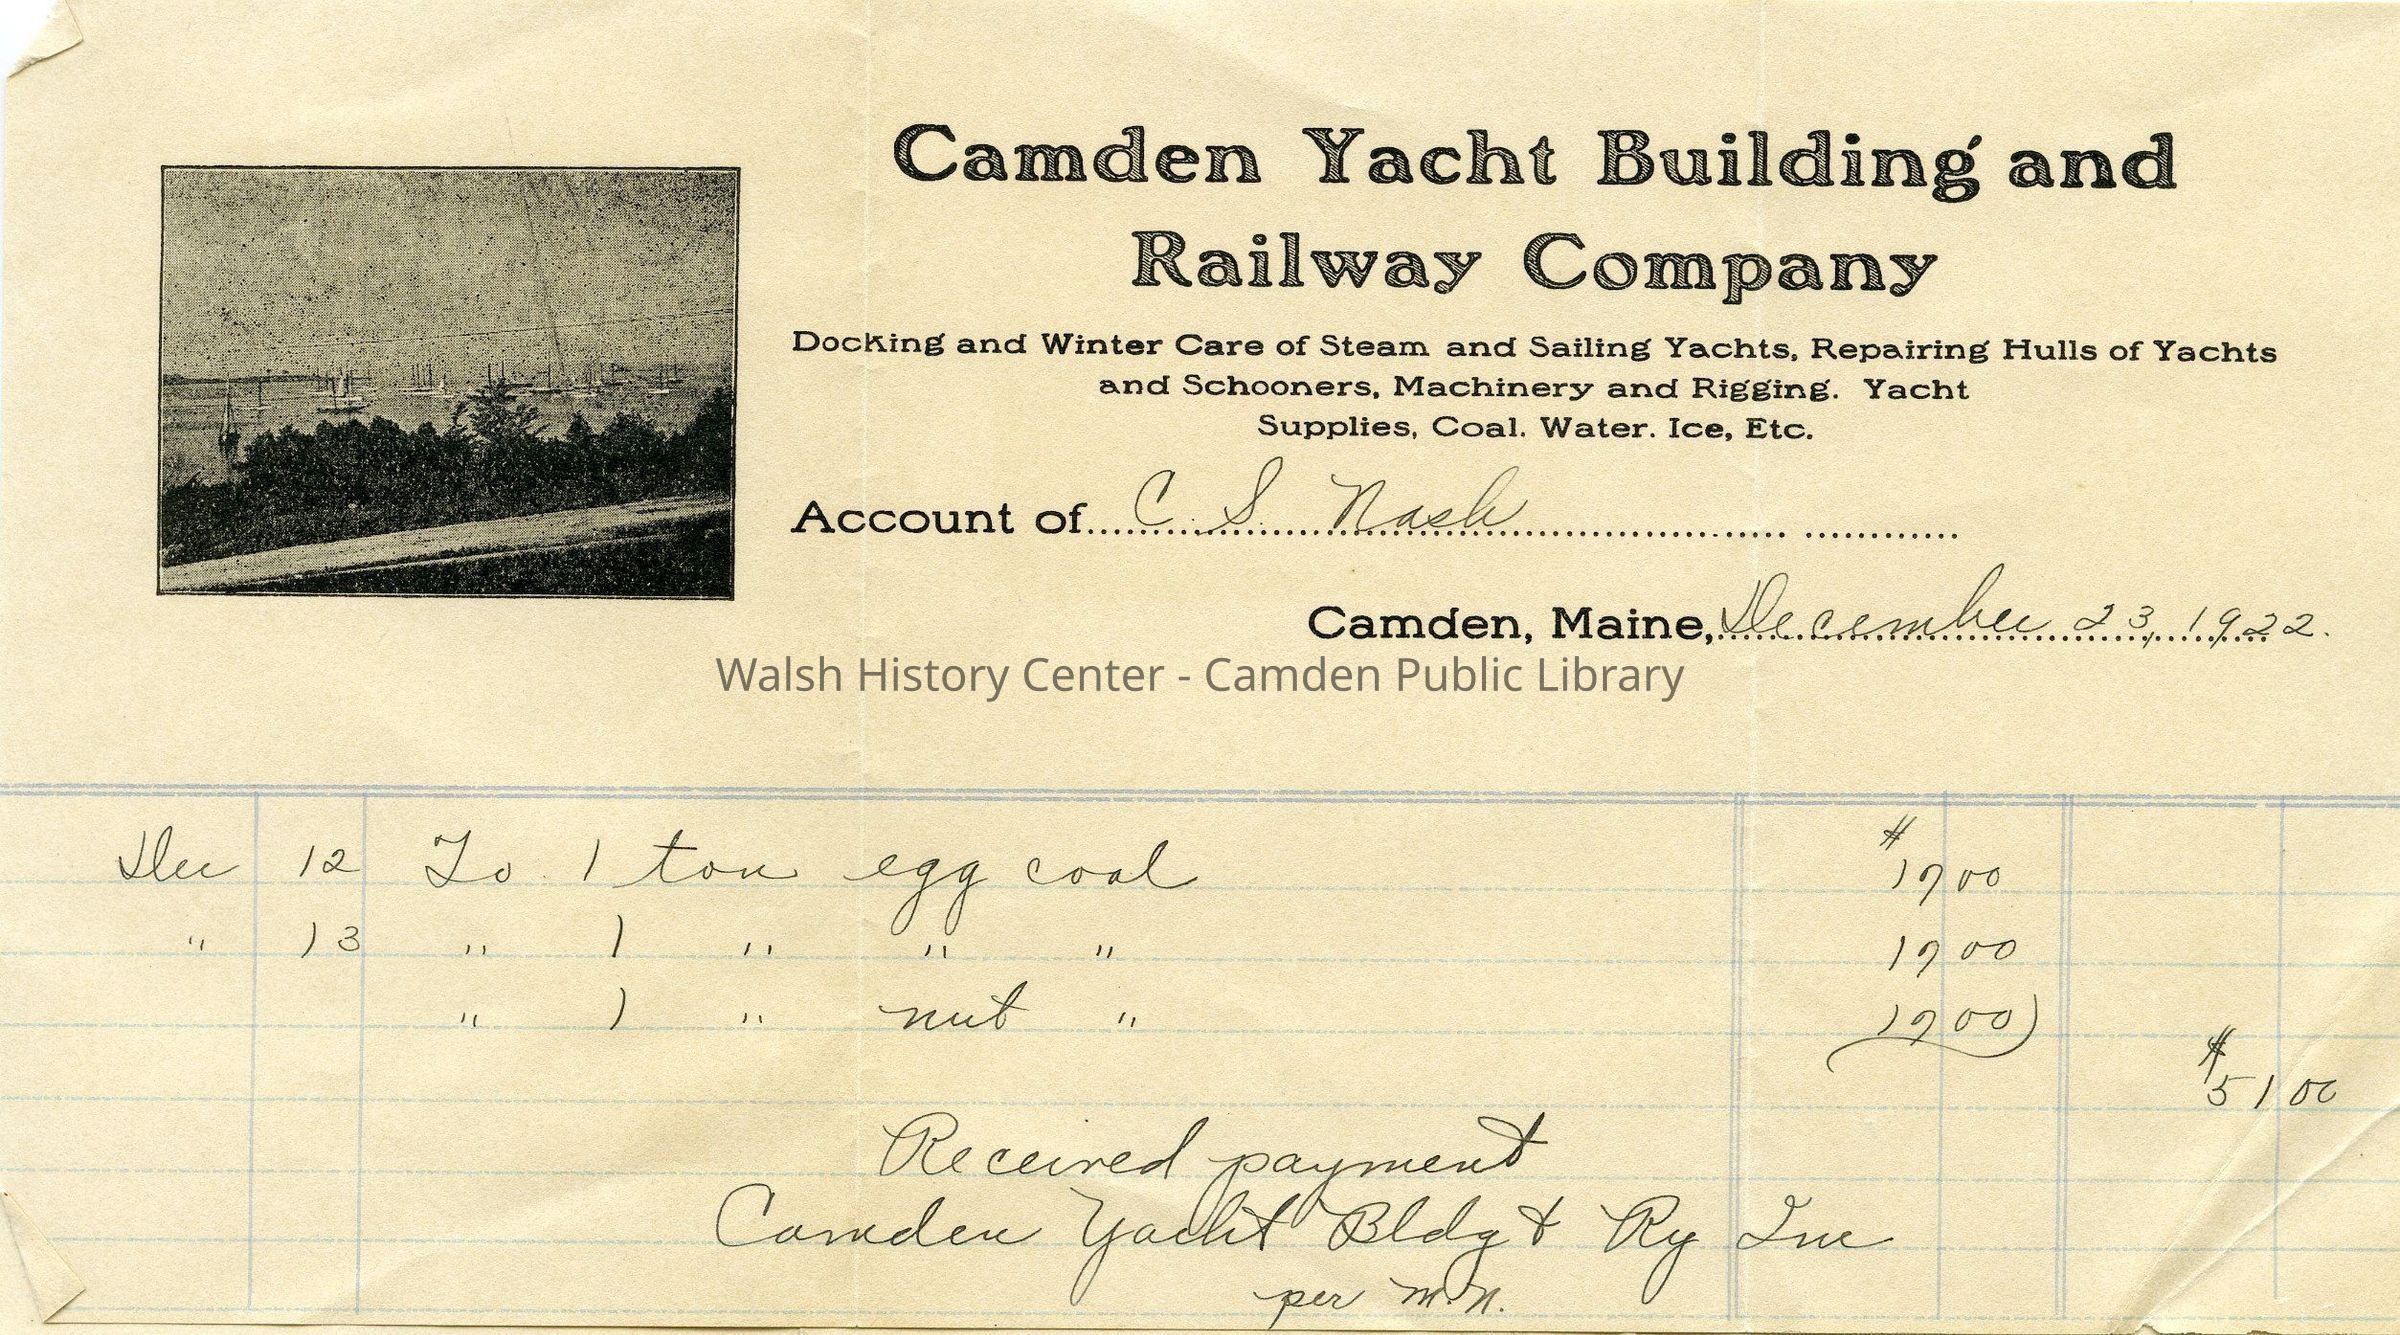 Camden Yacht Building and
Railway Company
Docking and Winter Care of Steam and Sailing Yachts, Repairing Hulls of Yachts
and Schooners, Machinery and Rigging. Yacht
Supplies, Coal. Water. Ice, Etc.
Account of C S Nash
Camden, Maine, December 23, 1922.
Walsh History Center - Camden Public Library
Dec 12 To 1 ton egg coal $17 00
" 13 " 1 " " " 17 00
" 1 " nut " 17 00)
$51 00
Received payment
Camden Yacht Bldg & Ry Inc
per M.N.